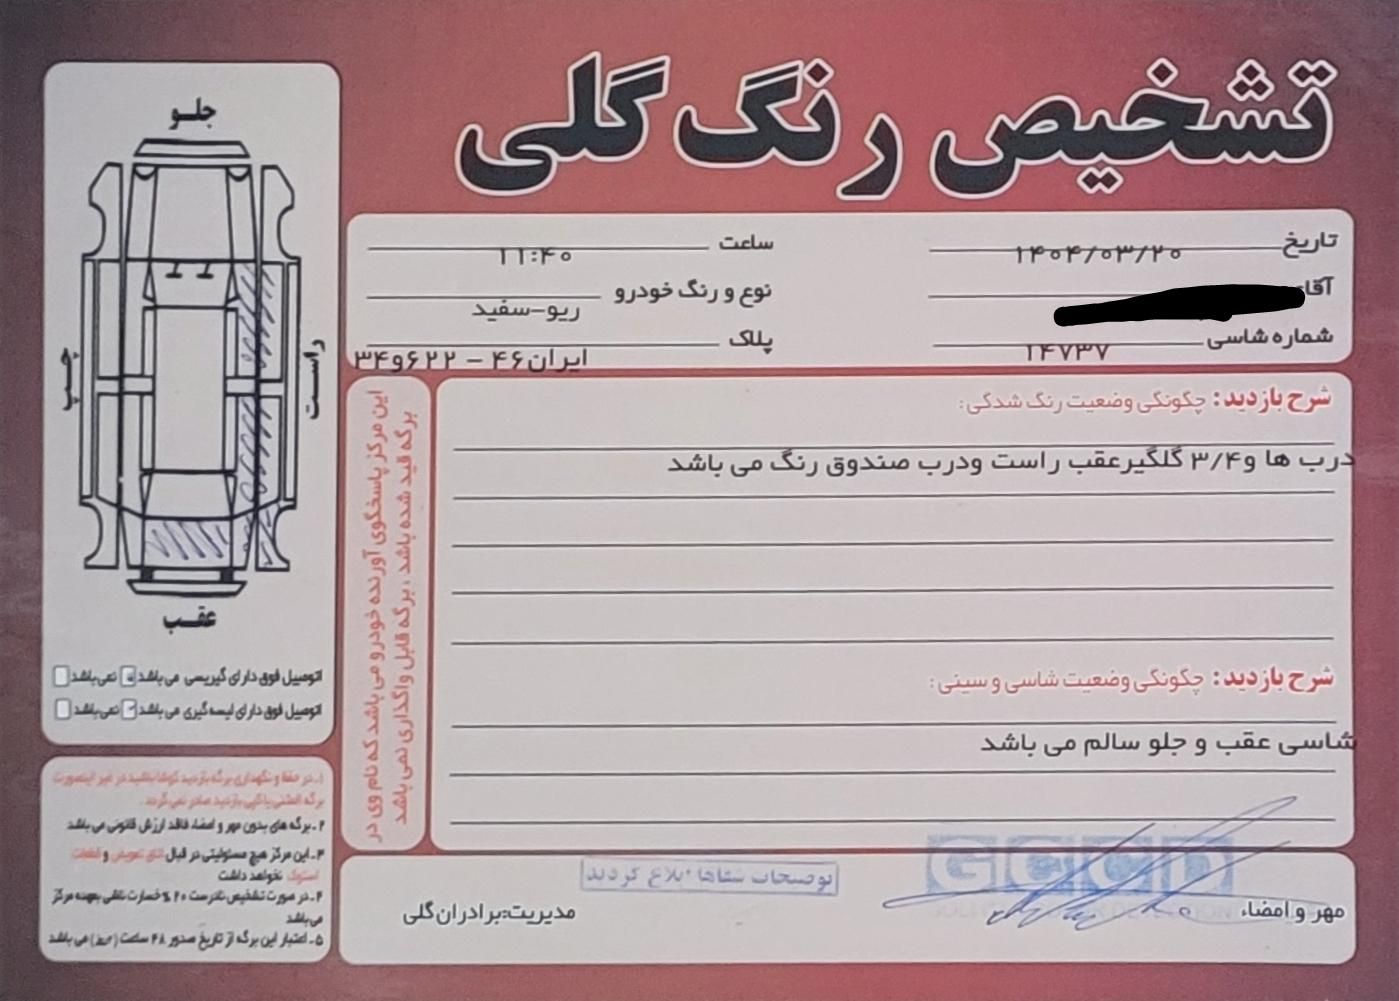 تشخیص رنگ گلی
تاریخ ۱۴۰۴/۰۳/۲۰
ساعت ۱۱:۴۰
آقای
نوع و رنگ خودرو ریو-سفید
شماره شاسی ۱۴۷۳۷
پلاک ایران۴۶ - ۶۲۲و۳۴
شرح بازدید: چگونگی وضعیت رنگ شدگی:
درب ها و۳/۴ گلگیرعقب راست ودرب صندوق رنگ می باشد
شرح بازدید: چگونگی وضعیت شاسی و سینی:
شاسی عقب و جلو سالم می باشد
این مرکز پاسخگوی آورنده خودرو می باشد که نام وی در
برگه قید شده باشد، برگه قابل واگذاری نمی باشد
جلو
چپ
راست
عقب
اتومبیل فوق دارای گیریسی می باشد نمی باشد
اتومبیل فوق دارای لیسه گیری می باشد نمی باشد
۱-در حفظ و نگهداری برگه بازدید کوشا باشید در غیر اینصورت
برگه المثنی یا کپی بازدید صادر نمی گردد.
۲-برگه های بدون مهر و امضاء فاقد ارزش قانونی می باشد
۳-این مرکز هیچ مسئولیتی در قبال اتاق تعویض و قطعات
استوک نخواهد داشت
۴-در صورت تشخیص نادرست ۲۰٪ خسارت ناشی بعهده مرکز
می باشد
۵-اعتبار این برگه از تاریخ صدور ۴۸ ساعت (۲روز) می باشد
توضیحات شفاها ابلاغ گردید
مهر و امضاء
GCCD
مدیریت:برادران گلی